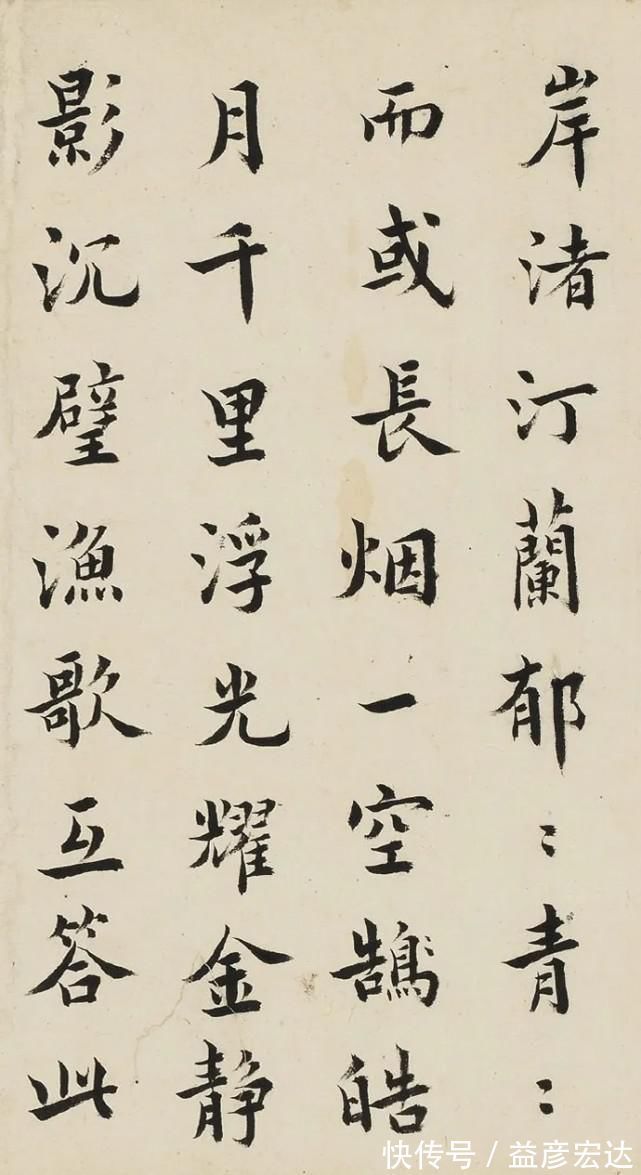 岸渚汀蘭郁〻青〻
而或長烟一空鵠皓
月千里浮光耀金静
影沉璧漁歌互答此
快传号 / 益彦宏达